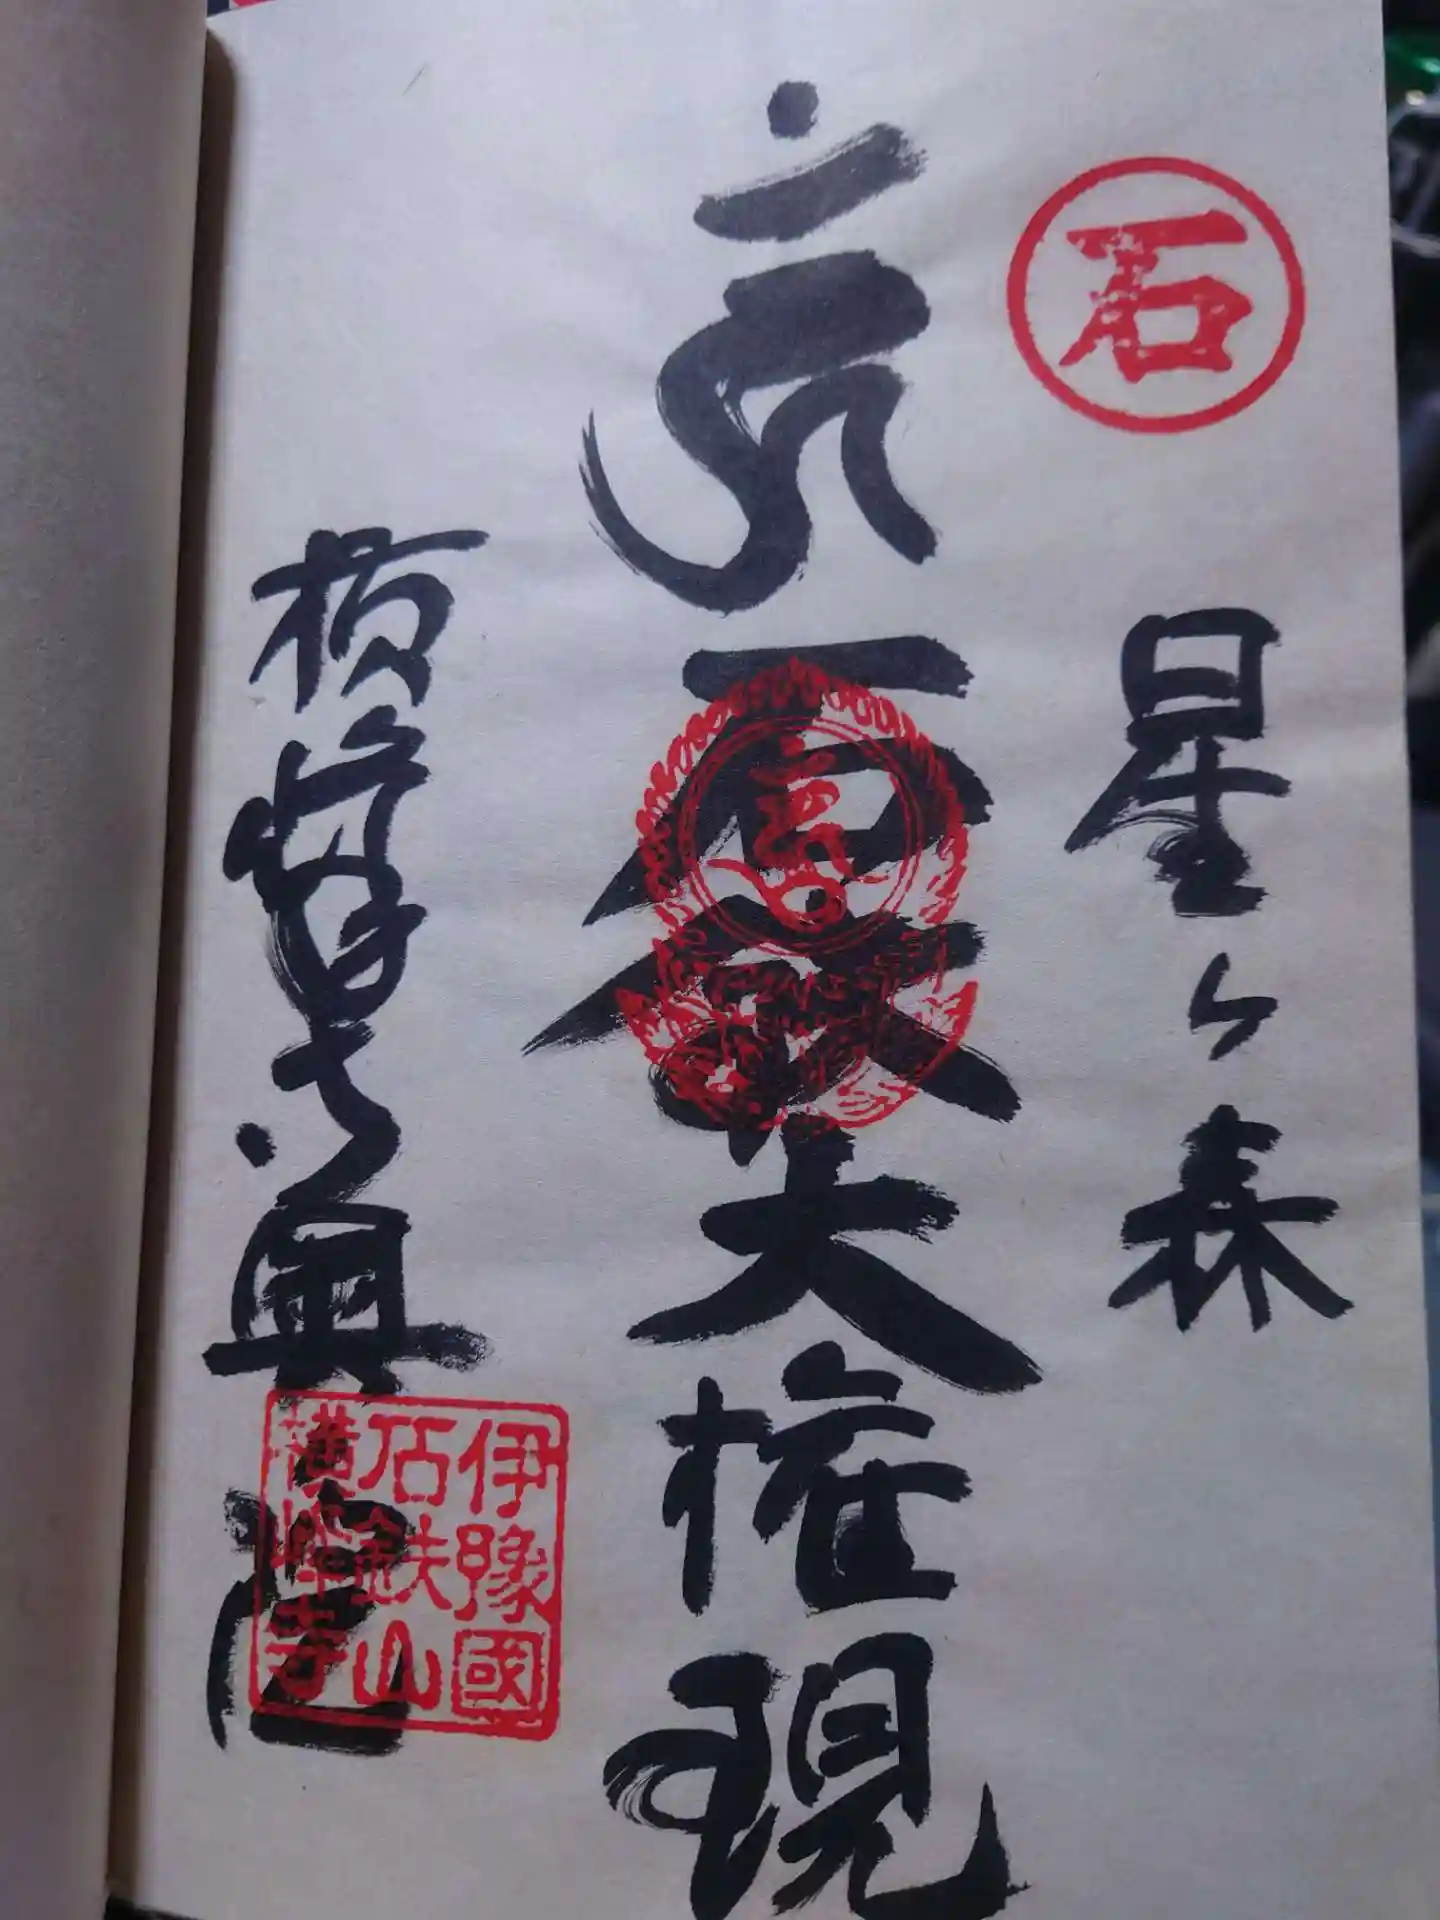 石
星ヶ森
大権現
横峰寺奥院
伊豫國
石鉄山
横峰寺